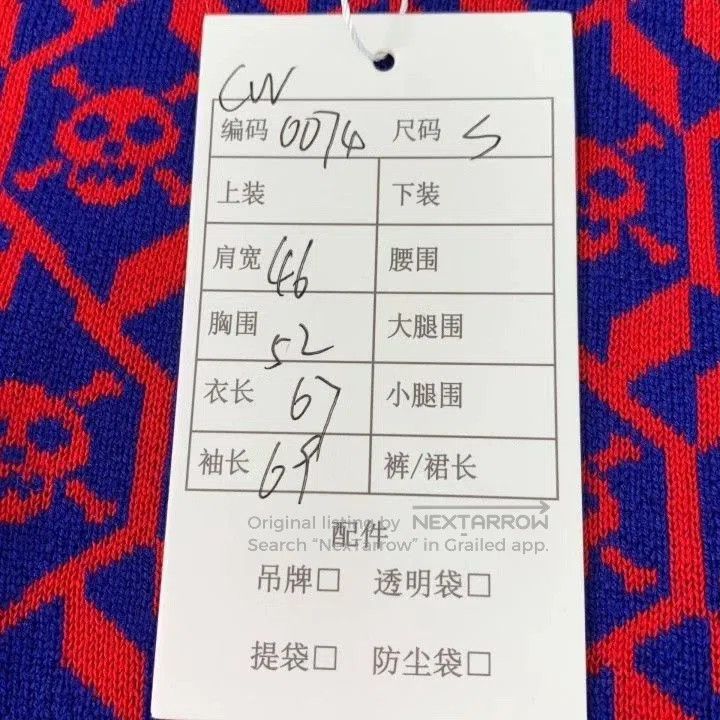 CW
编码 0074 尺码 S
上装 下装
肩宽 46 腰围
胸围 52 大腿围
衣长 67 小腿围
袖长 69 裤/裙长
配件
Original listing by NEXTARROW
Search “NexTarrow” in Grailed app.
吊牌□ 透明袋□
提袋□ 防尘袋□